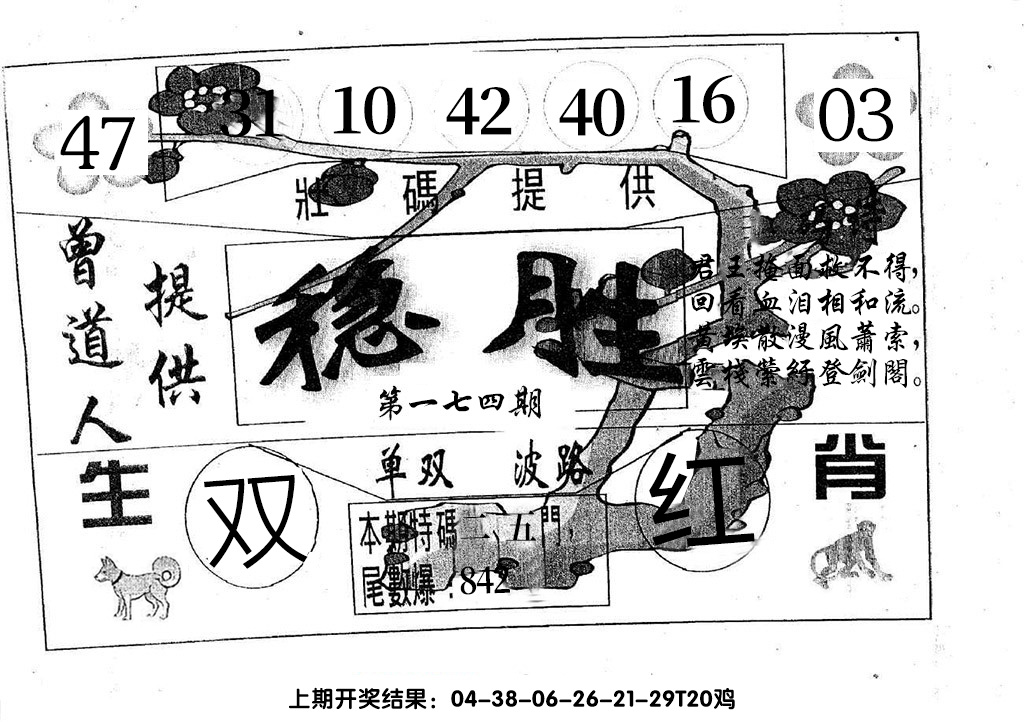 47 31 10 42 40 16 03
壯碼提供
曾道人
提供
特
稳胜
君王掩面救不得，
回看血泪相和流。
黃埃散漫風蕭索，
雲栈縈紆登劍閣。
第一七四期
单双 波路
生肖
双
红
本期特碼二、五門，
尾數爆：842
上期开奖结果：04-38-06-26-21-29T20鸡